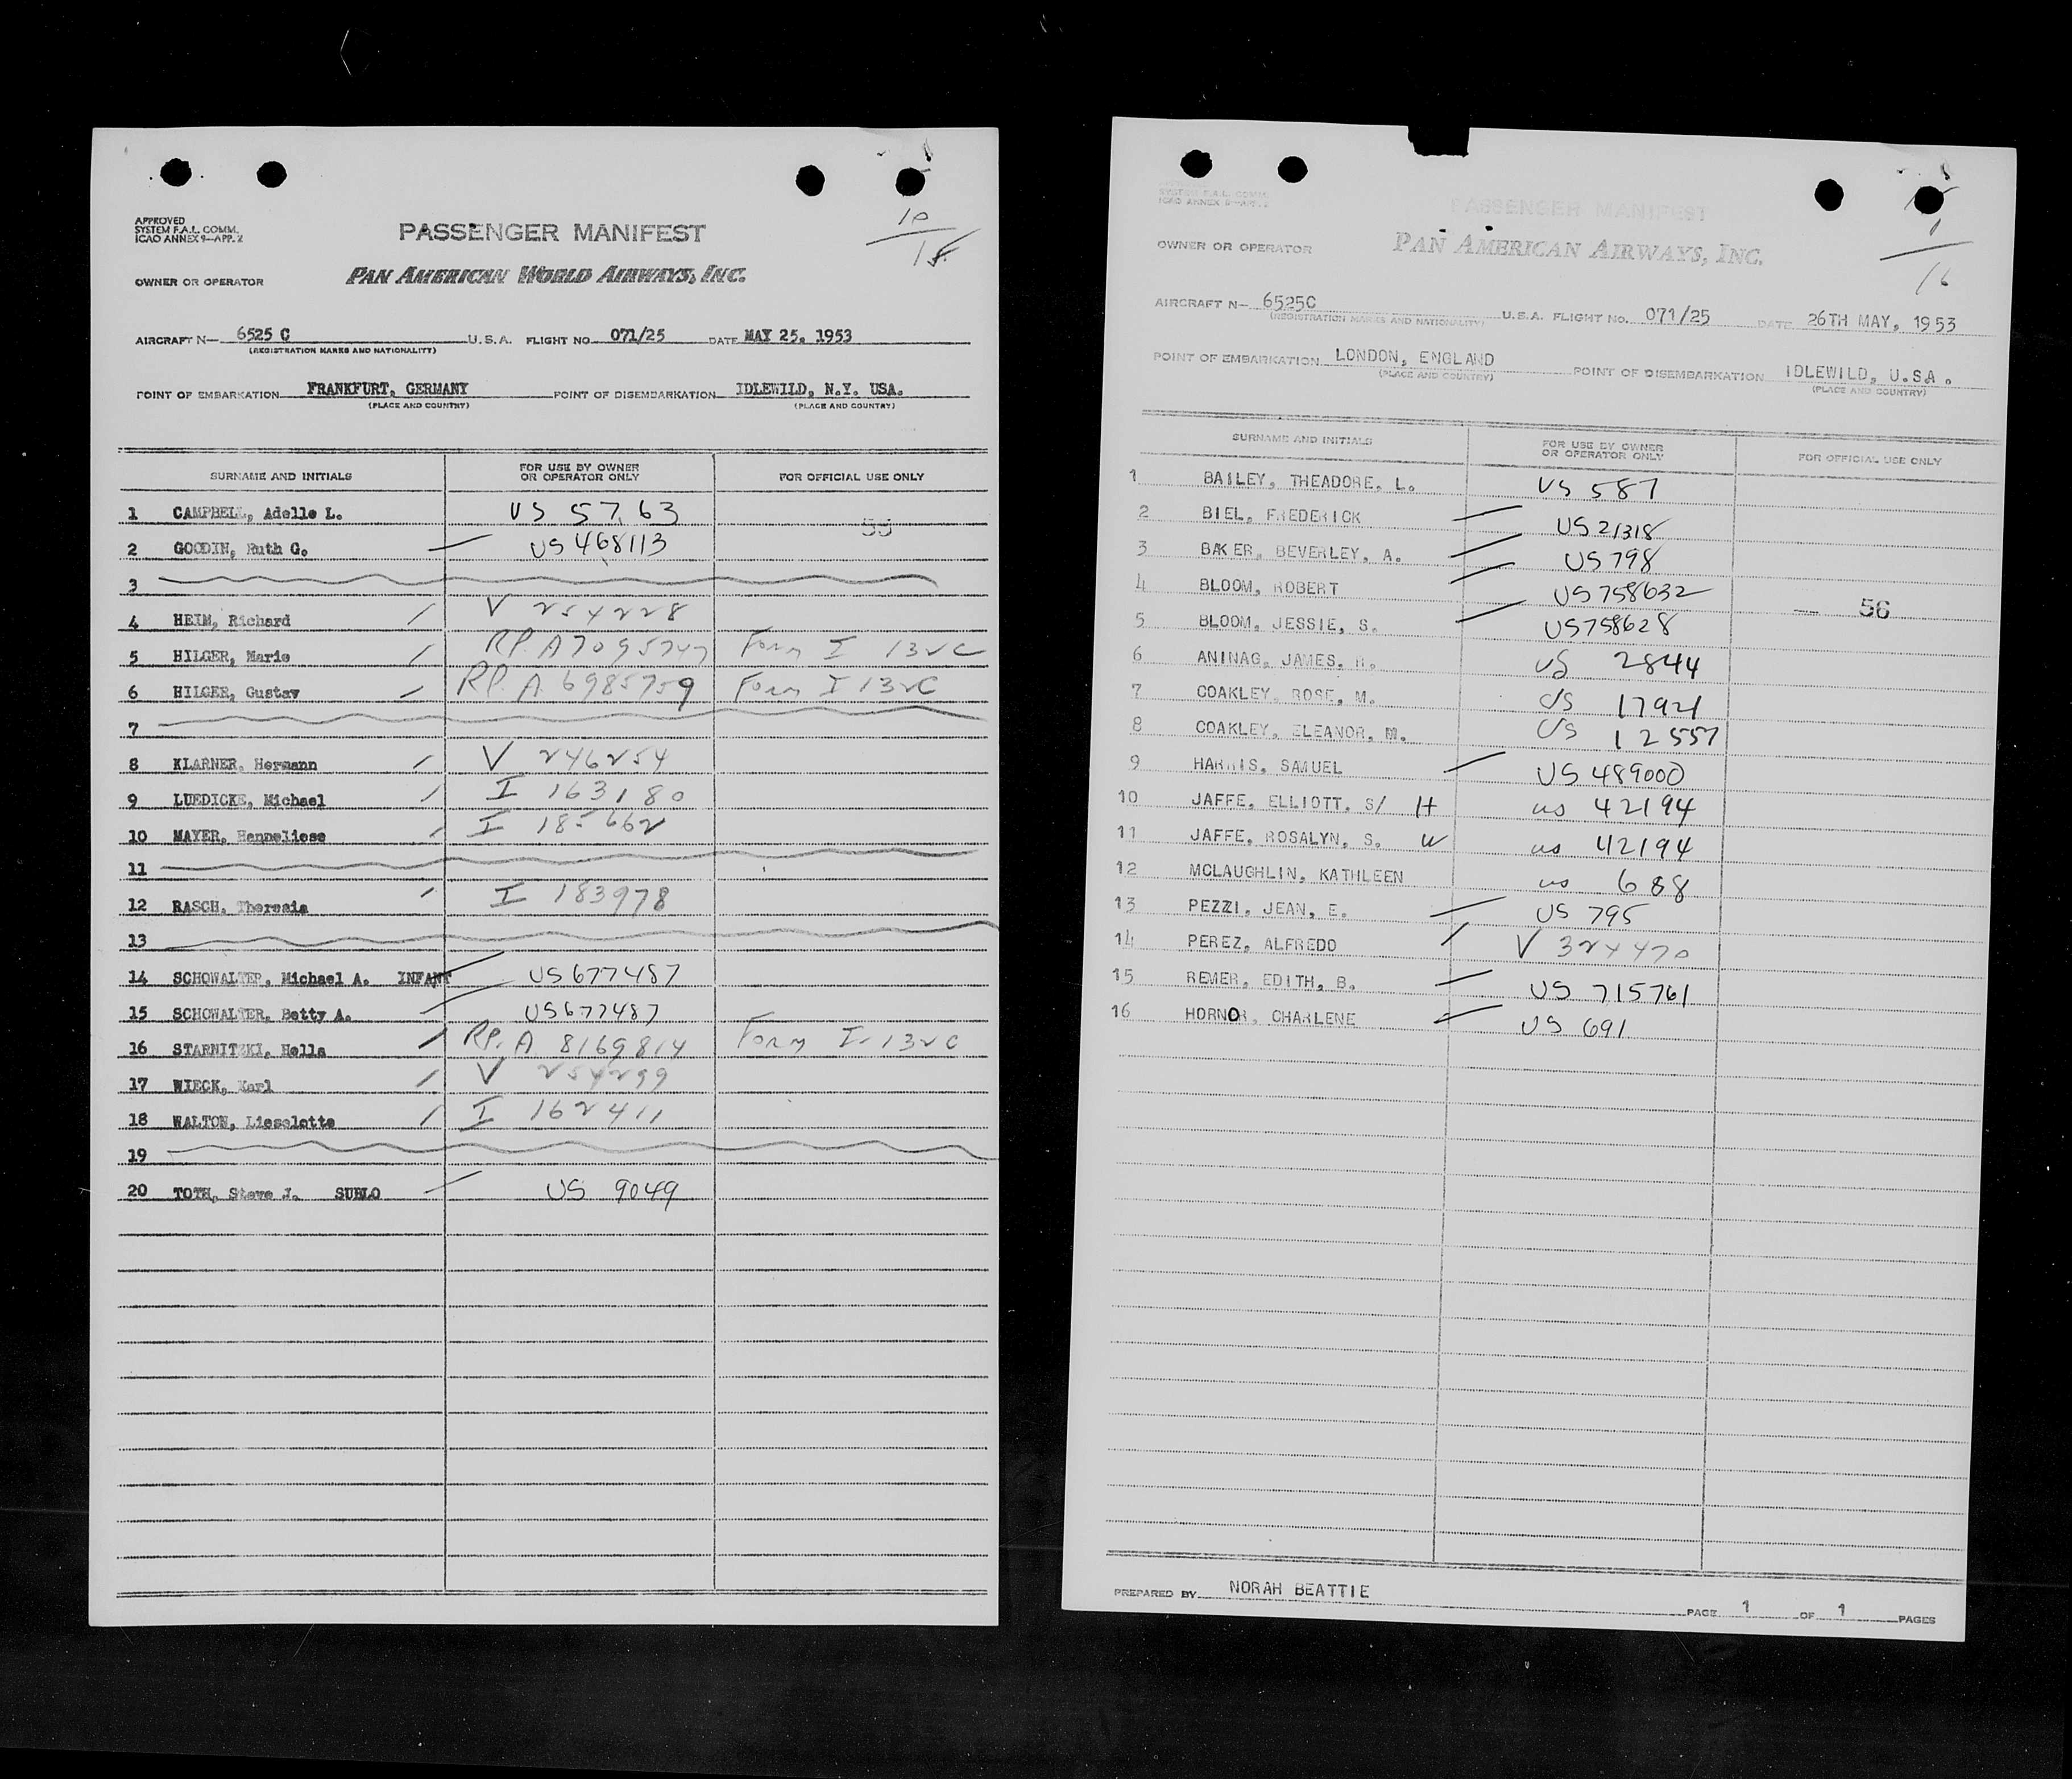 APPROVED
SYSTEM F.A.L. COMM.
ICAO ANNEX 9—APP. 2
PASSENGER MANIFEST
10
15
OWNER OR OPERATOR PAN AMERICAN WORLD AIRWAYS, INC.
AIRCRAFT N— 6525 C U.S.A. FLIGHT NO 071/25 DATE MAY 25, 1953
(REGISTRATION MARKS AND NATIONALITY)
POINT OF EMBARKATION FRANKFURT, GERMANY POINT OF DISEMBARKATION IDLEWILD, N.Y. USA.
(PLACE AND COUNTRY) (PLACE AND COUNTRY)
SURNAME AND INITIALS FOR USE BY OWNER OR OPERATOR ONLY FOR OFFICIAL USE ONLY
1 CAMPBELL, Adelle L. US 5763
55
2 GOODIN, Ruth G. US 468113
3
4 HEIM, Richard V 254228
5 HILGER, Marie RP. A7095747 Form I 132C
6 HILGER, Gustav RP. A 6985759 Form I 132C
7
8 KLARNER, Hermann V 246254
9 LUEDICKE, Michael I 163180
10 MAYER, Hanneliese I 185662
11
12 RASCH, Theresia I 183978
13
14 SCHOWALTER, Michael A. INFANT US 677487
15 SCHOWALTER, Betty A. US 677487
16 STARNITZKI, Hella RP. A 8169814 Form I-132C
17 WIECK, Karl V 254299
18 WALTON, Lieselotte I 162411
19
20 TOTH, Steve J. SUBLO US 9049
SYSTEM F.A.L. COMM.
ICAO ANNEX 9—APP. 2
PASSENGER MANIFEST
1
16
OWNER OR OPERATOR PAN AMERICAN AIRWAYS, INC.
AIRCRAFT N— 6525C U.S.A. FLIGHT NO. 071/25 DATE 26TH MAY, 1953
(REGISTRATION MARKS AND NATIONALITY)
POINT OF EMBARKATION LONDON, ENGLAND POINT OF DISEMBARKATION IDLEWILD, U.S.A.
(PLACE AND COUNTRY) (PLACE AND COUNTRY)
SURNAME AND INITIALS FOR USE BY OWNER OR OPERATOR ONLY FOR OFFICIAL USE ONLY
1 BAILEY, THEADORE, L. US 587
2 BIEL, FREDERICK US 21318
3 BAKER, BEVERLEY, A. US 798
4 BLOOM, ROBERT US 758632
56
5 BLOOM, JESSIE, S. US758628
6 ANINAG, JAMES, R. US 2844
7 COAKLEY, ROSE, M. US 17921
8 COAKLEY, ELEANOR, M. US 12557
9 HARRIS, SAMUEL US 489000
10 JAFFE, ELLIOTT, S/ H us 42194
11 JAFFE, ROSALYN, S. W us 42194
12 MCLAUGHLIN, KATHLEEN us 688
13 PEZZI, JEAN, E. US 795
14 PEREZ, ALFREDO V 324470
15 REMER, EDITH, B. US 715761
16 HORNOR, CHARLENE US 691
PREPARED BY NORAH BEATTIE
PAGE 1 OF 1 PAGES